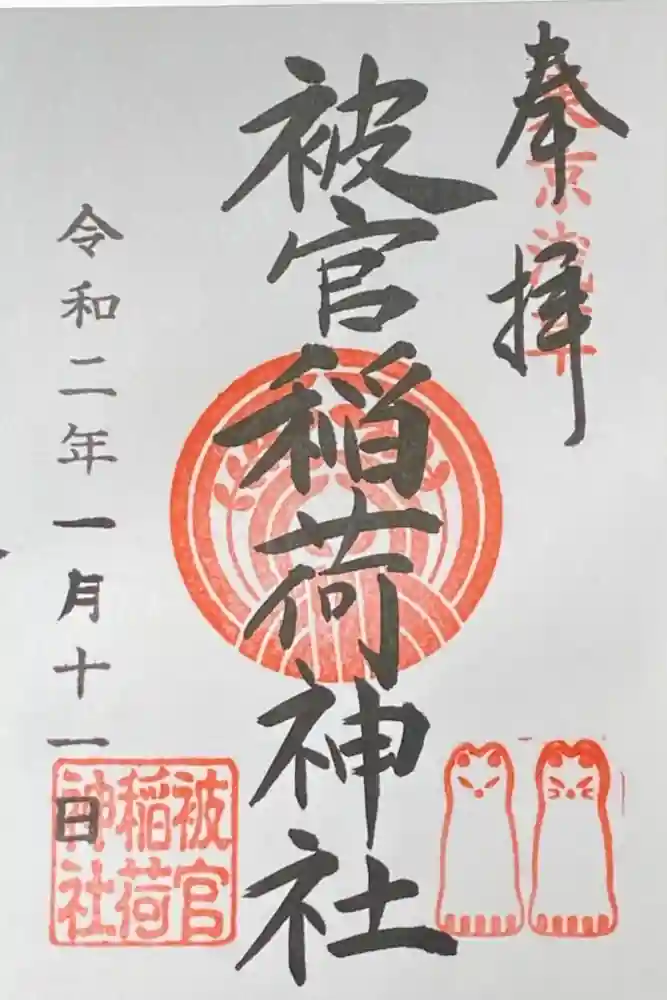 奉拝
東京浅草
被官稲荷神社
令和二年一月十一日
被官
稲荷
神社